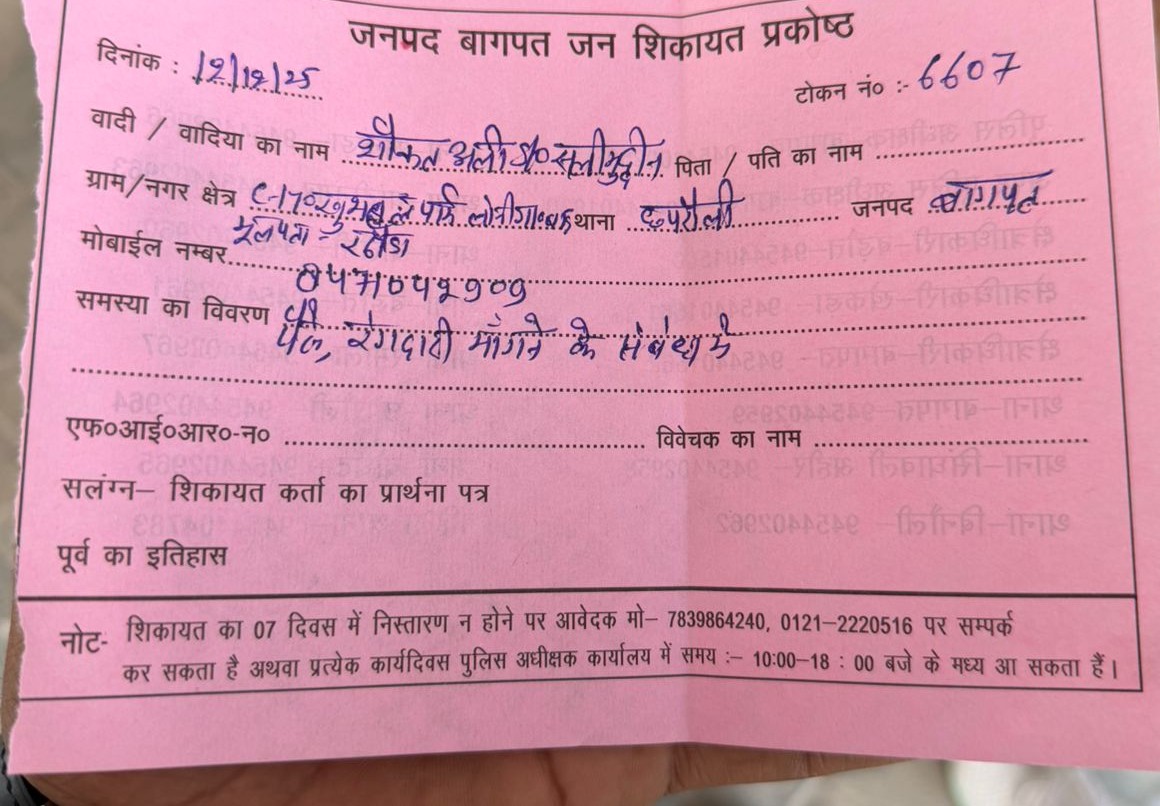 जनपद बागपत जन शिकायत प्रकोष्ठ
दिनांक : 12/12/25
टोकन नं० :- 6607
वादी / वादिया का नाम शौकत अली S/o सलीमुद्दीन पिता / पति का नाम
ग्राम/नगर क्षेत्र थाना छपरौली जनपद बागपत
मूलपता रठौडा
मोबाईल नम्बर
समस्या का विवरण
रंगदारी माँगने के संबंध मे
एफ०आई०आर०-न० विवेचक का नाम
सलंग्न– शिकायत कर्ता का प्रार्थना पत्र
पूर्व का इतिहास
नोट- शिकायत का 07 दिवस में निस्तारण न होने पर आवेदक मो– 7839864240, 0121–2220516 पर सम्पर्क
कर सकता है अथवा प्रत्येक कार्यदिवस पुलिस अधीक्षक कार्यालय में समय :– 10:00–18 : 00 बजे के मध्य आ सकता हैं।